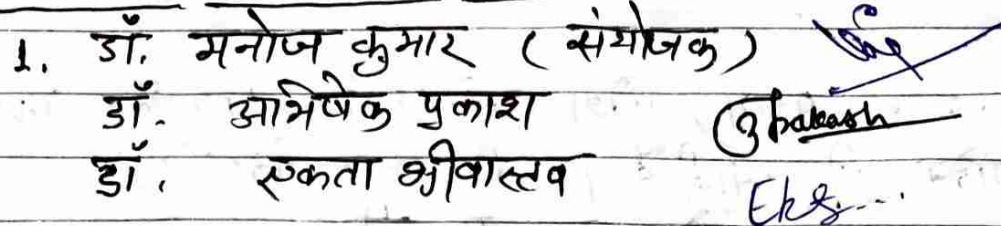 1. डॉ. मनोज कुमार (संयोजक)
डॉ. अभिषेक प्रकाश
डॉ. एकता श्रीवास्तव